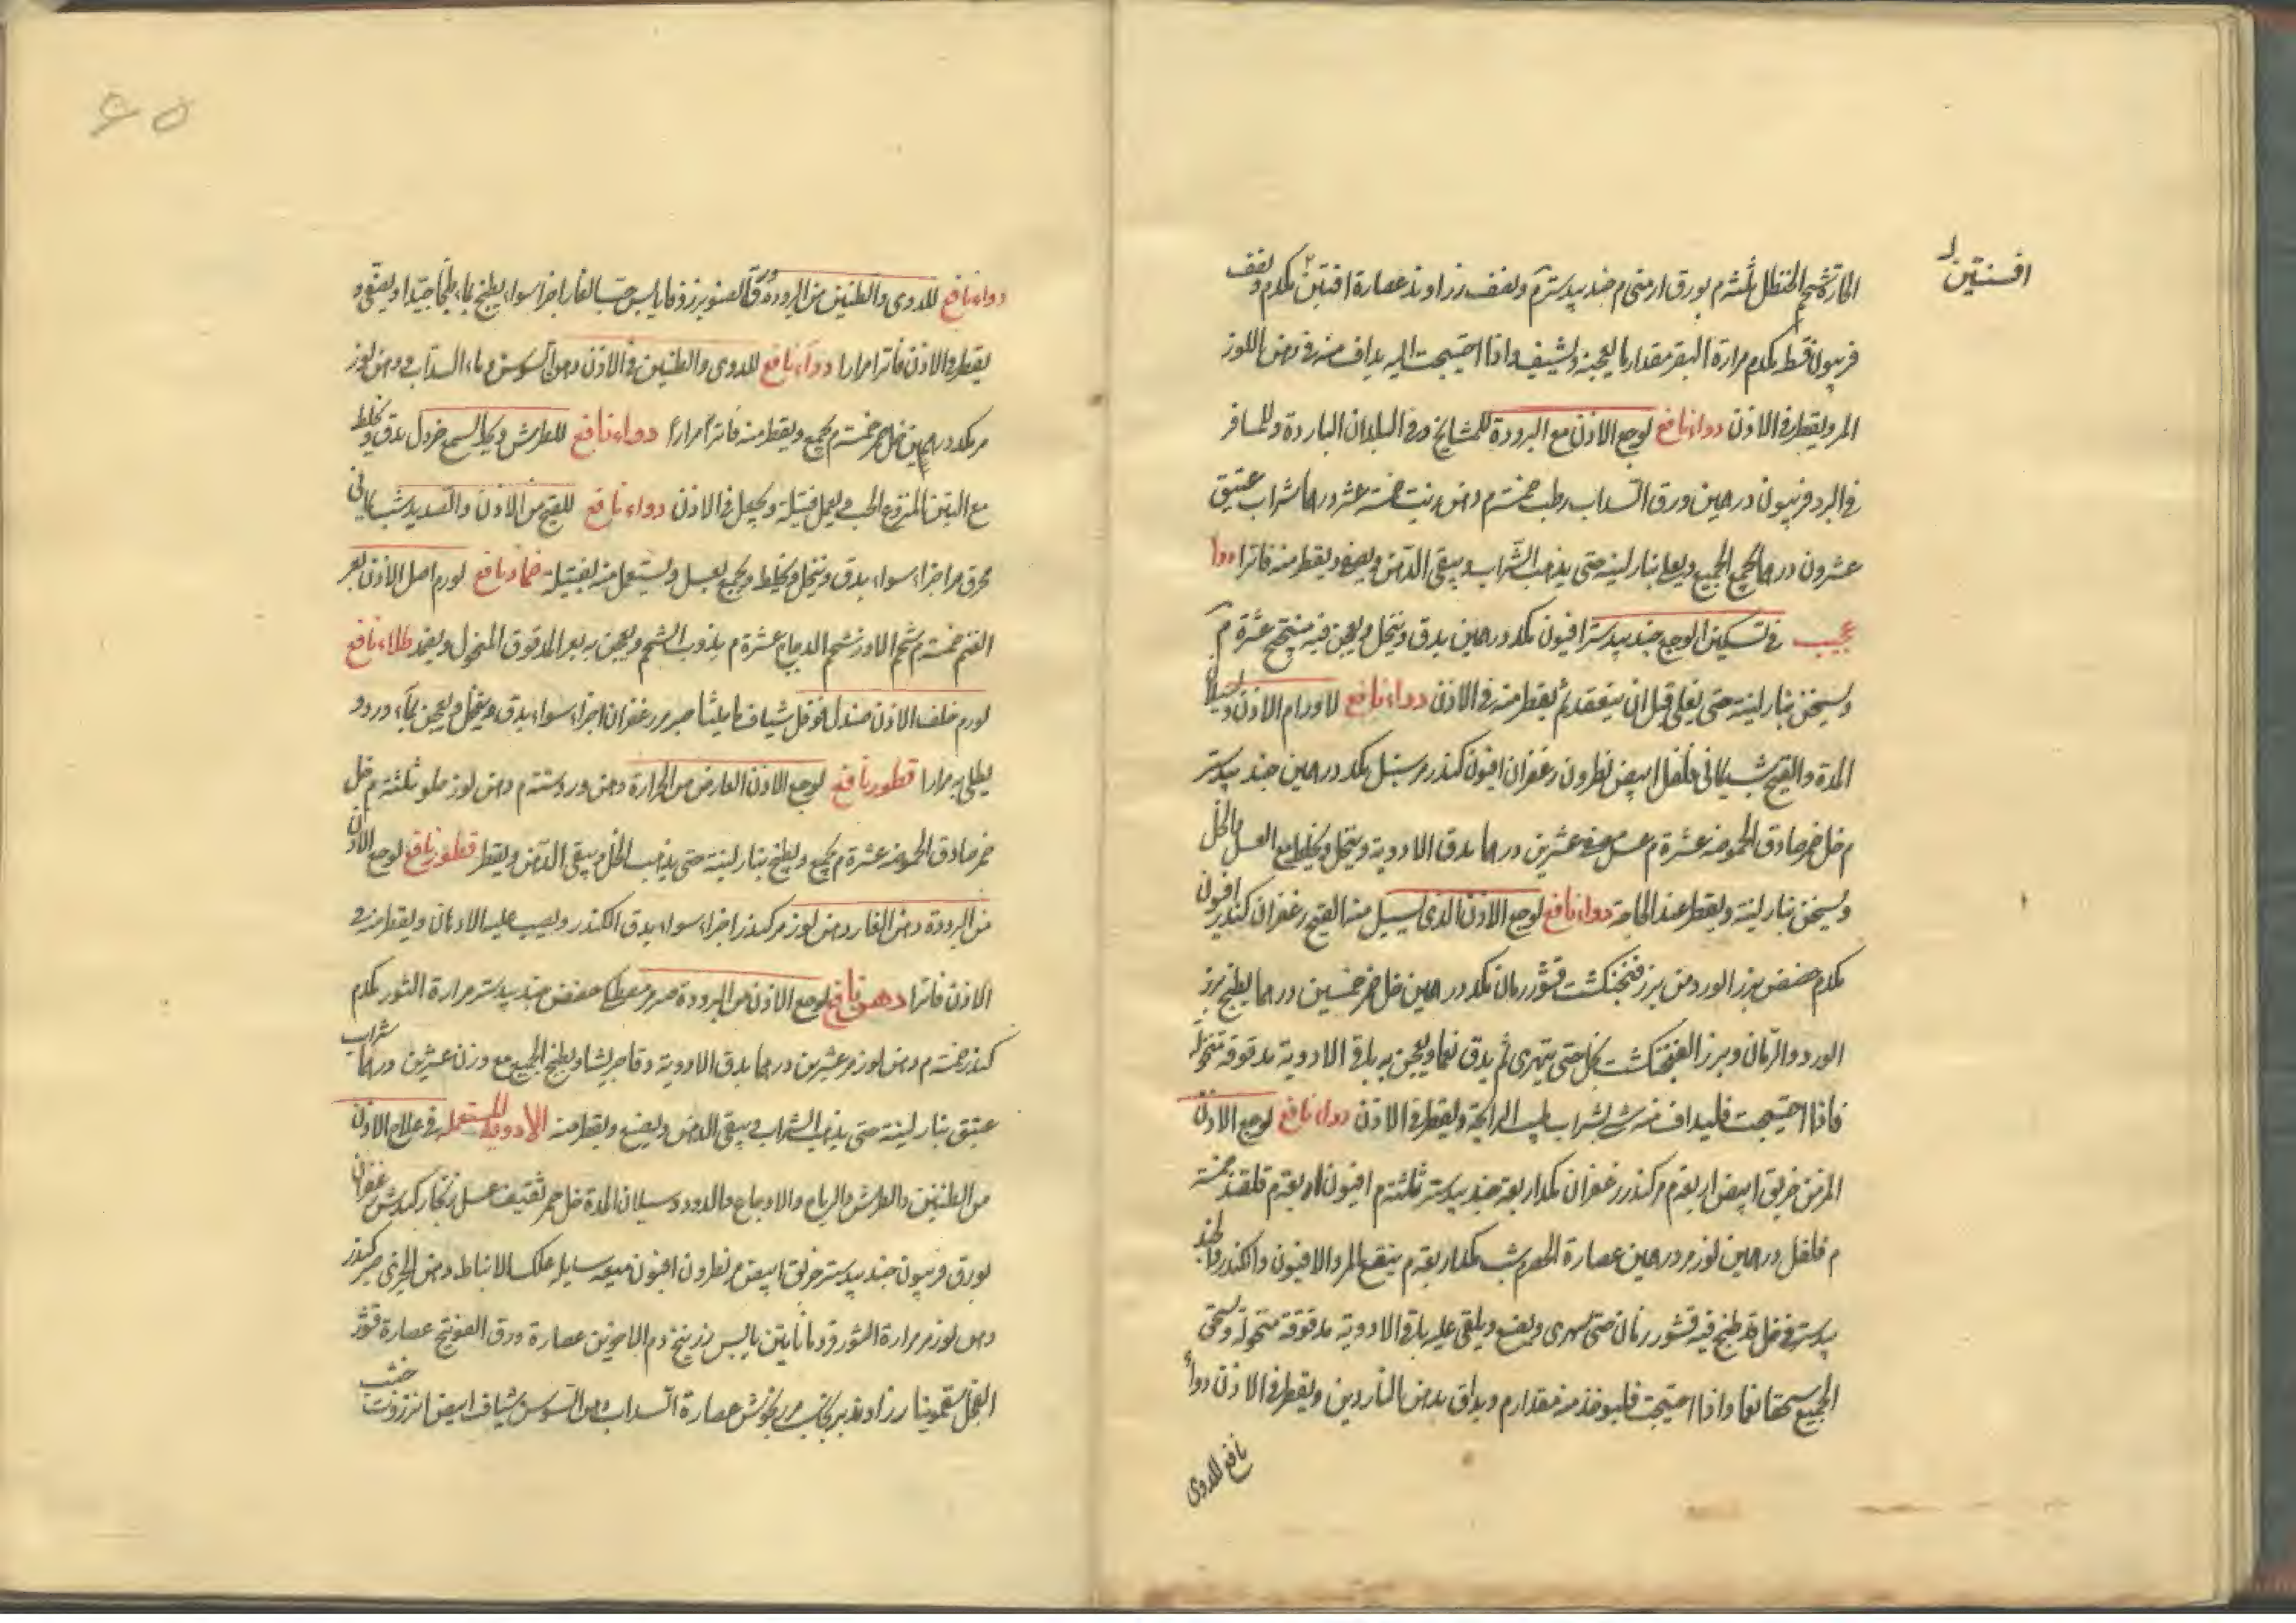 افسنتين
الحارة شحم الحنظل ثلثه م بورق ارمنى م جند بيدستر م ونصف زراوند عصارة افنتين مكدم ونصف
فربيون قسط مكدم مرارة البقر مقدار ما يعجنه ويشيف واذا احتيجت اليه يداف منه فى دهن اللوز
المر ويقطر فى الاذن دواء نافع لوجع الاذن مع البرودة للمشايخ وفى البلدان الباردة وللمسافر
فى البرد فربيون درهمين ورق السداب رطب خمسة م دهن زيت خمسة عشر درهما شراب عتيق
عشرون درهما يجمع الجميع ويغلى بنار لينة حتى يذهب الشراب ويبقى الدهن ويصفى ويقطر منه فاترا دوا
عجيب فى تسكين الوجع جند بيدستر افيون مكد درهمين يدق وينخل ويعجن فيه ميفختج عشرة م
ويسخن بنار لينة حتى يغلى قبل ان ينعقد ثم يقطر منه فى الاذن دواء نافع لاورام الاذن وسيلان
المدة والقيح شب يمانى فلفل ابيض نطرون زعفران افيون كندر مر سنبل مكد درهمين جند بيدستر
م خل خمر صادق الحموضه عشرة م عسل عشرين درهما يدق الادوية وينخل ويخلط مع العسل والخل
ويسخن بنار لينة ويقطر عند الحاجة دواء نافع لوجع الاذن الذى يسيل منه القيح زعفران كندر افيون
مكدم حضض بزر الورد مر بزر فنجنكشت قشور رمان مكد درهمين خل خمر خمسين درهما يطبخ بزر
الورد والرمان وبزر الفنجنكشت بخل حتى يتهرى ثم يدق نعما ويعجن به باقى الادوية مدقوقة منخولة
فاذا احتيجت فليداف منه شى بشراب طيب الرائحة ويقطر فى الاذن دواء نافع لوجع الاذن
المزمن خربق ابيض اربعة م مر كندر زعفران مكد اربعة جند بيدستر ثلثة م افيون اربعة م قلقند خمسة
م فلفل درهمين لوز مر درهمين عصارة الحصرم شب مكد اربعة م ينقع المر والافيون والكندر والجند
بيدستر فى خل قد طبخ فيه قشور رمان حتى تهرى ويصفى ويلقى عليه باقى الادوية مدقوقة منخولة ويسحق
الجميع سحقا نعما واذا احتيجت فليوخذ منه مقدار م ويداف بدهن الناردين ويقطر فى الاذن دواء
نافع للدوى
٤٥
دواء نافع للدوى والطنين من البرودة ورق الصنوبر زوفا يابس حب الغار اجزا سواء يطبخ بماء طبخا جيدا ويصفى و
يقطر فى الاذن فاترا مرارا دواء نافع للدوى والطنين فى الاذن دهن السوسن ماء السداب دهن لوز
مر مكد درهمين خل خمر خمسة م يجمع ويقطر منه فاترا مرارا دواء نافع للطرش وثقل السمع خردل يدق ويخلط
مع التين المنزوع الحب ويعمل فتيلة ويجعل فى الاذن دواء نافع للقيح من الاذن والصديد شب يمانى
محرق مر اجزاء سواء يدق وينخل ويخلط ويجمع بعسل ويستعمل منه بفتيلة ضماد نافع لورم اصل الاذن بعر
الغنم خمسة م شحم الاوز شحم الدجاج عشرة م يذوب الشحم ويعجن به بعر المدقوق المنخول ويضمد طلاء نافع
لورم خلف الاذن صندل فوفل شياف ماميثا صبر مر زعفران اجزاء سواء يدق وينخل ويعجن بماء ورد و
يطلى به مرارا قطور نافع لوجع الاذن العارض من الحرارة دهن ورد ستة م دهن لوز حلو ثلثة م خل
خمر صادق الحموضه عشرة م يجمع ويطبخ بنار لينة حتى يذهب الخل ويبقى الدهن ويقطر قطور نافع لوجع الاذن
من البرودة دهن الغار دهن لوز مر كندر اجزاء سواء يدق الكندر ويصب عليه الادهان ويقطر منه فى
الاذن فاترا دهن نافع لوجع الاذن من البرودة صبر مر مصطكا حضض جند بيدستر مرارة الثور مكدم
كندر خمسة م دهن لوز مر عشرين درهما يدق الادوية دقا جريشا ويطبخ الجميع مع وزن عشرين درهما شراب
عتيق بنار لينة حتى يذهب الشراب ويبقى الدهن ويصفى ويقطر منه الادوية المستعملة فى علاج الاذن
من الطنين والطرش والرياح والاوجاع والدود وسيلان المدة خل خمر ثقيف عسل زنجار كندش زعفران
بورق فربيون جند بيدستر خربق ابيض مر نطرون افيون ميعه سايله علك الانباط دهن الخيرى صبر كندر
دهن لوز مر مرارة الثور قردمانا تين يابس زرنيخ دم الاخوين عصارة ورق الفوتنج عصارة قشور
الفجل سقمونيا زراوند مرزنجوش عصارة السداب دهن السوسن شياف ابيض انزروت خبث